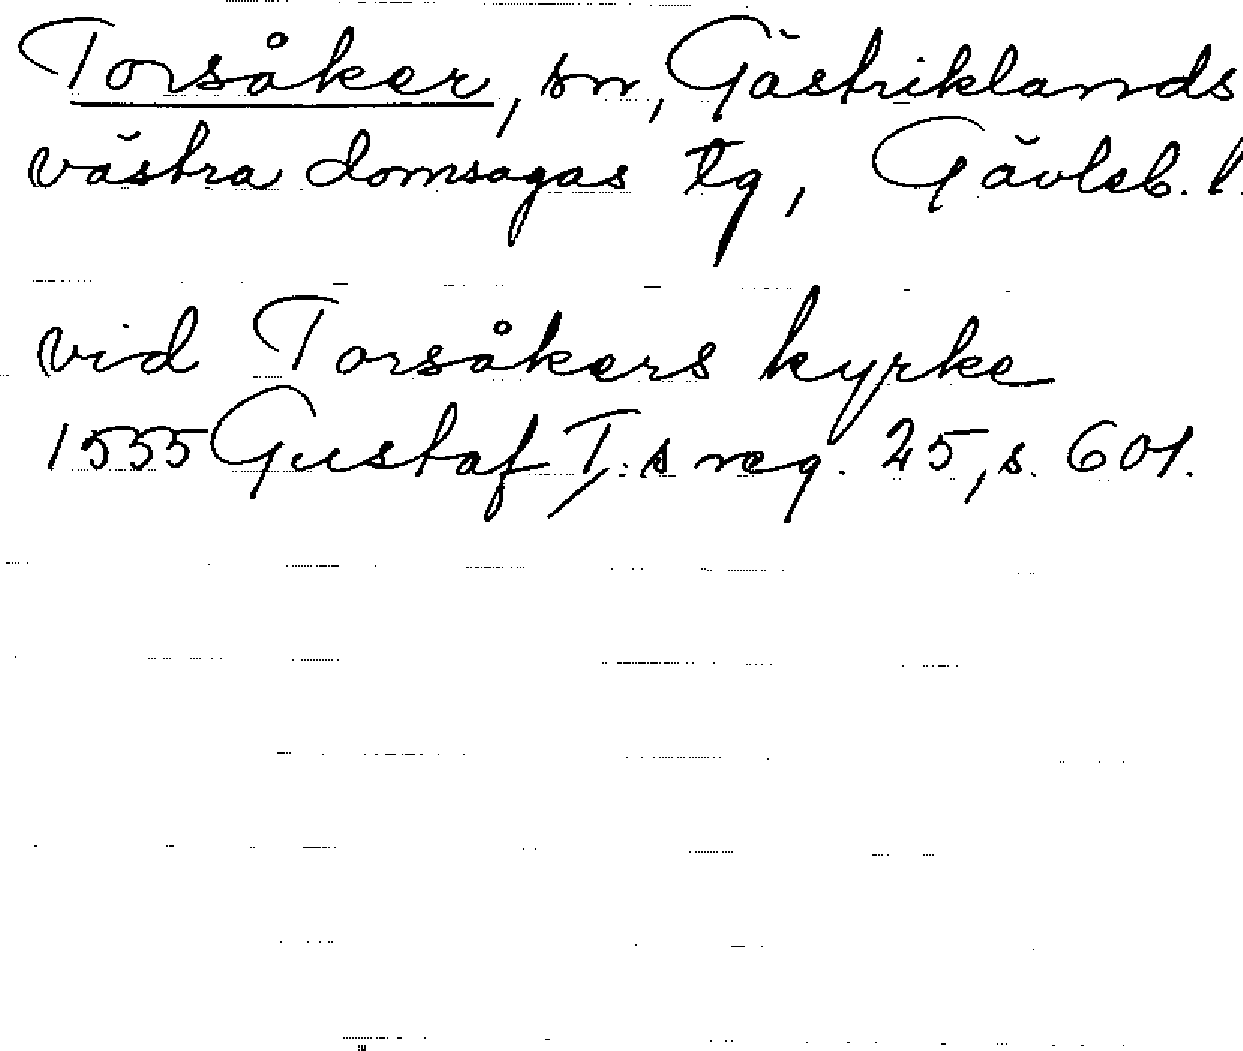 Torsåker, sn, Gästriklands
västra domsagas tg, Gävleb. l.
vid Torsåkers kyrke
1555 Gustaf I:s reg. 25, s. 601.